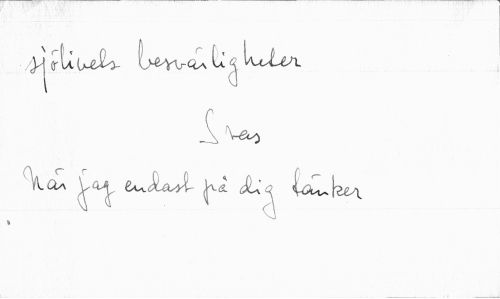 sjölivets besvärligheter
Svas
När jag endast på dig tänker